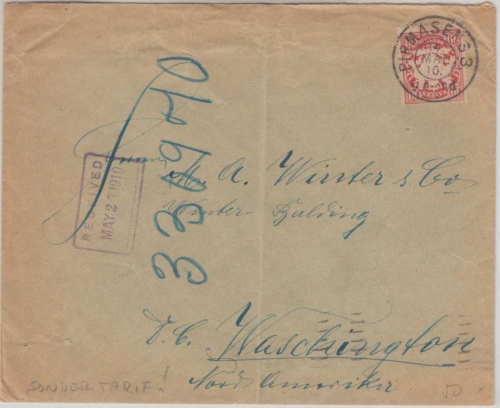 PIRMASENS 3
MAI
10.
RECEIVED
MAY 2 1910
33940
M. A. Winter & Co
Winter- Bulding
D. C. Waschington
Nord Amerika
SONDERTARIF!
50